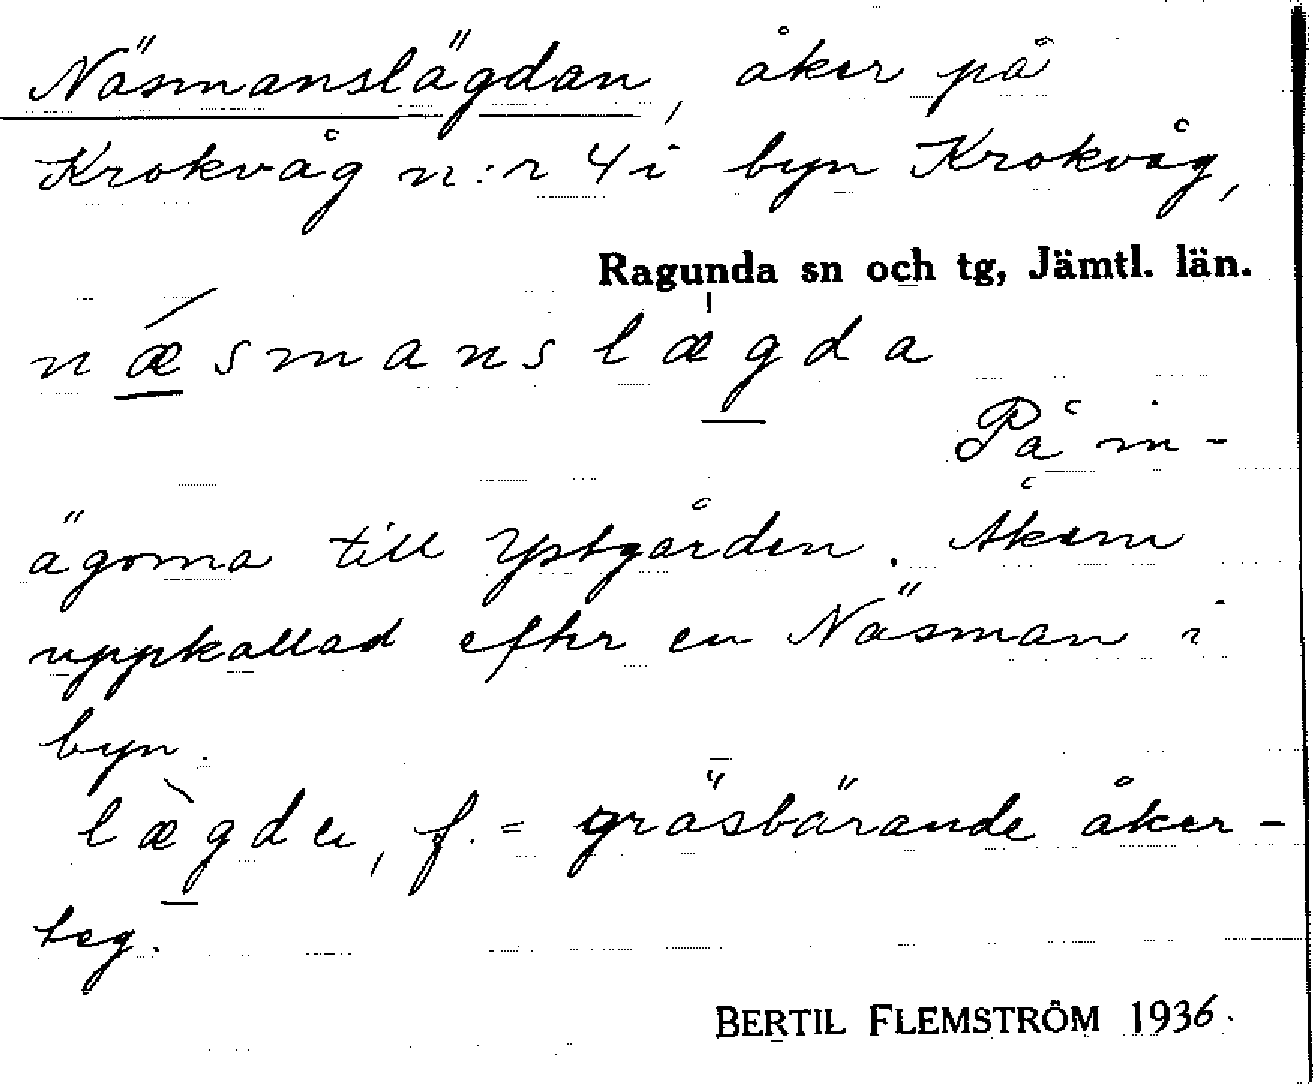 Näsmanslägdan, åker på
Krokvåg n:r 4 i byn Krokvåg,
Ragunda sn och tg, Jämtl. län.
nǽ̲smanslæ̍g̲da
På in-
ägorna till Ystgården. Åkern
uppkallad efter en Näsman i
byn.
læ̀g̲da, f. = gräsbärande åker-
teg.
BERTIL FLEMSTRÖM 1936.